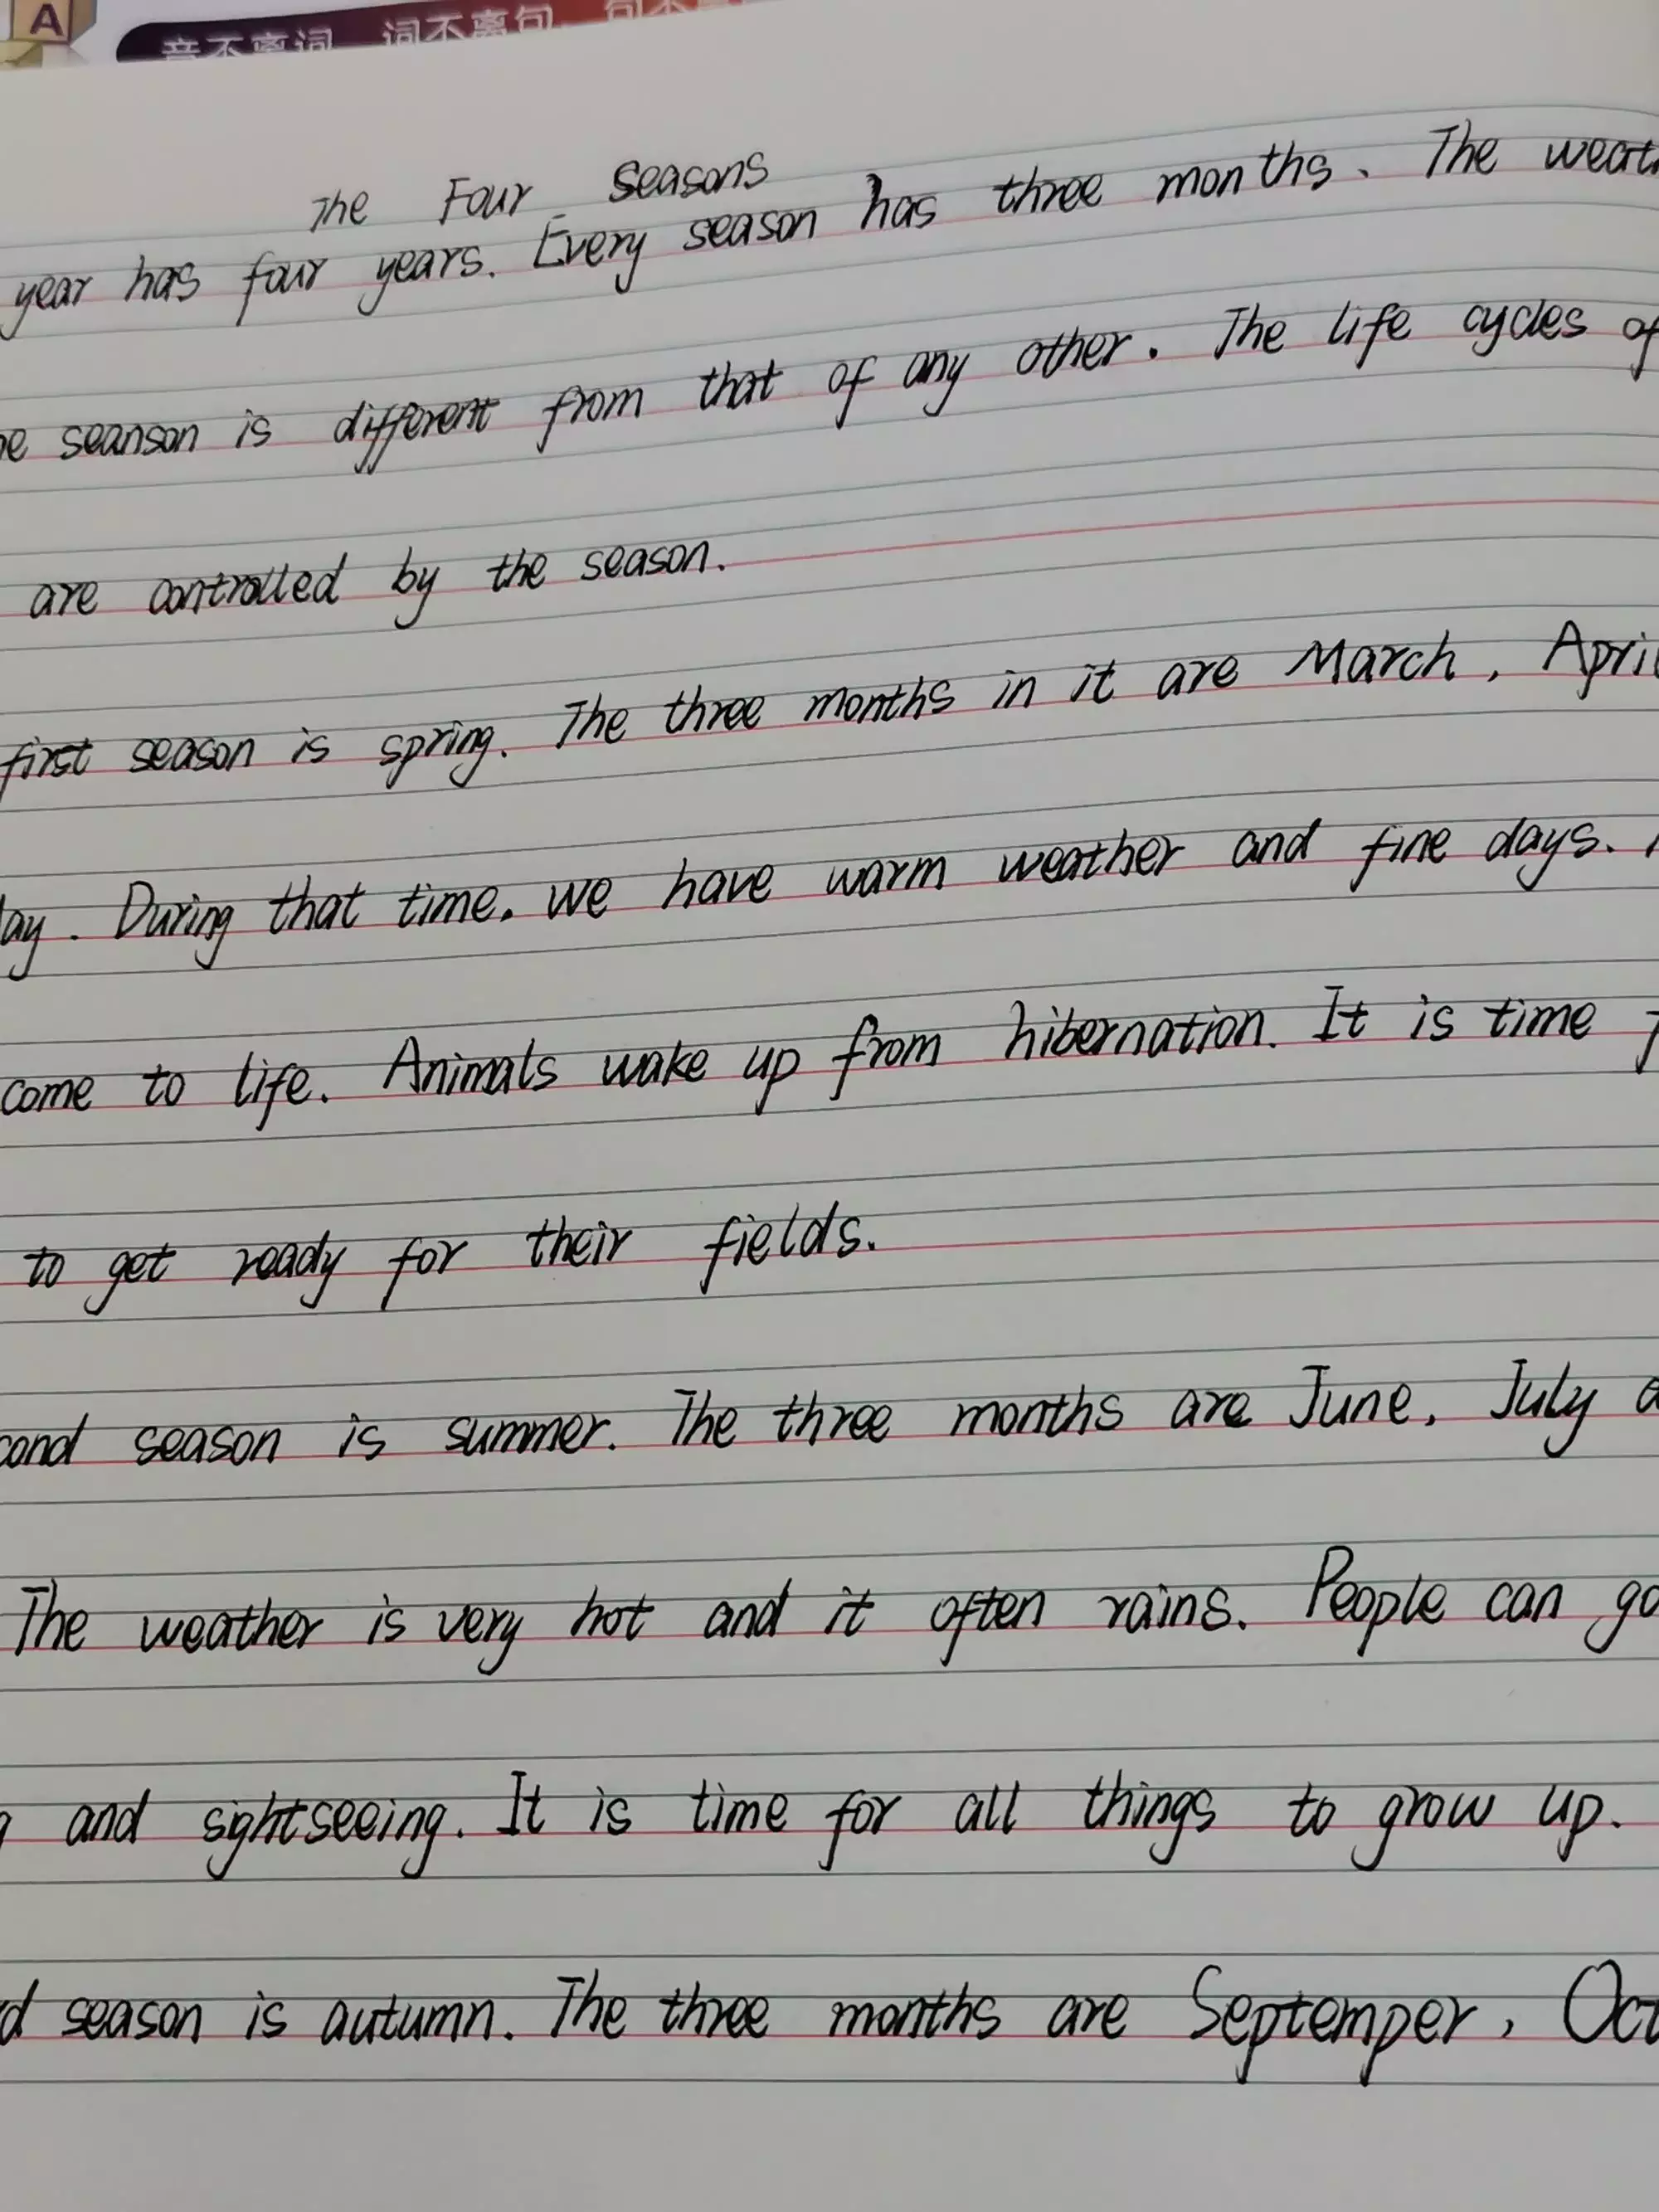 A
音不离词 词不离句
The Four Seasons
year has four years. Every season has three months. The
seanson is different from that of any other. The life cycles of
are controlled by the season.
first season is spring. The three months in it are March, April
During that time. we have warm weather and fine days.
come to life. Animals wake up from hibernation. It is time
to get ready for their fields.
season is summer. The three months are June, July
The weather is very hot and it often rains. People can go
and sightseeing. It is time for all things to grow up.
season is autumn. The three months are Septemper,